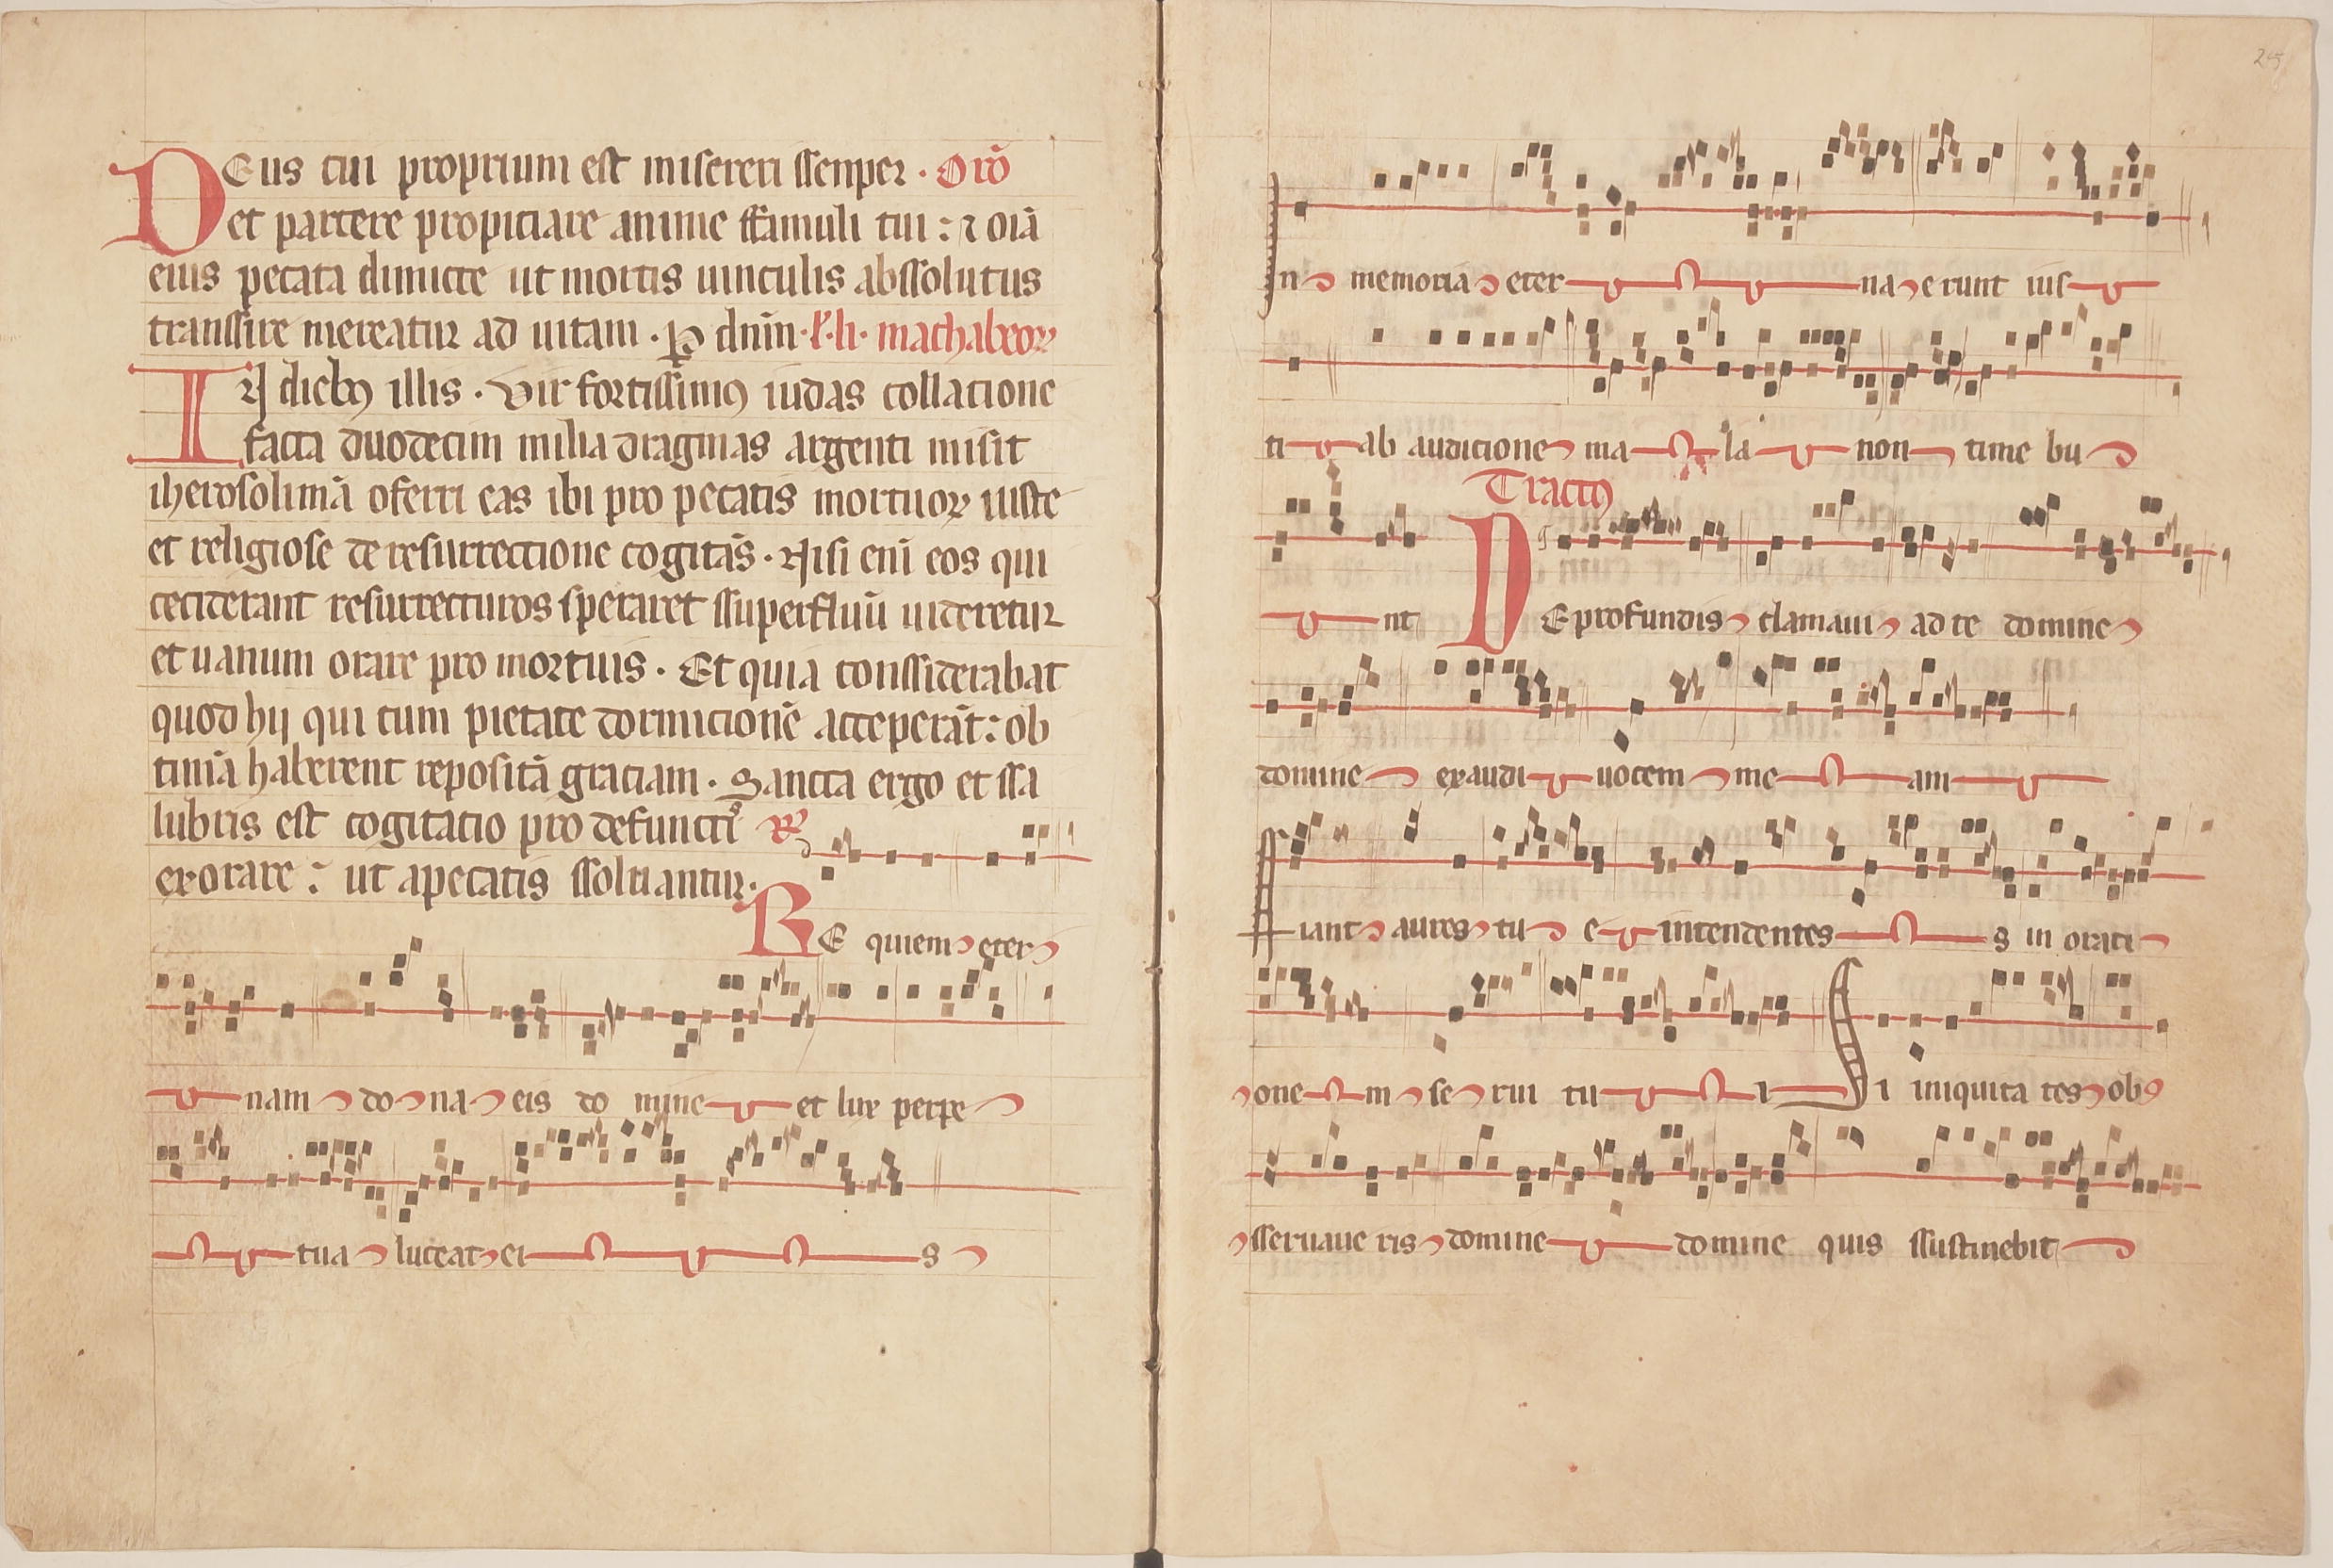 DEus cui proprium est misereri ssenper · Orō
et parcere propiciare anime ffamuli tui : ⁊ oīa
eius pecata dimicte ut mortis uinculis abssolutus
transsire mereatur ad uitam · P dnm̄ · l· li· machabeoꝝ
IN diebꝫ illis · Vir fortissimꝰ iudas collacione
facta duodecim milia dragmas argenti misit
iherosolimā oferri eas ibi pro pecatis mortuoꝝ iuste
et religiose de resurrectione cogitās · Nisi enī eos qui
ceciderant resurrecturos speraret ssuperfluū uideretur
et uanum orare pro mortuis · Et quia conssiderabat
quod hij qui cum pietate dormicionē acceperāt : ob
timā haberent repositā graciam · Sancta ergo et ssa
lubris est cogitatio pro defuncti s ℟
exorare : ut apecatis ssoluantur ·
RE quiem eter
nam do na eis do mine et lux perpe
tua luceat ei s
25
In memoria eter na erunt ius
ti ab audicione ma la non time bu
Tractꝰ
nt DE profundis clamaui ad te domine
domine exaudi uocem me am
Fiant aures tu e intendentes s in orati
one m se rui tu i Si iniquita tes ob
sseruaue ris domine domine quis ssustinebit